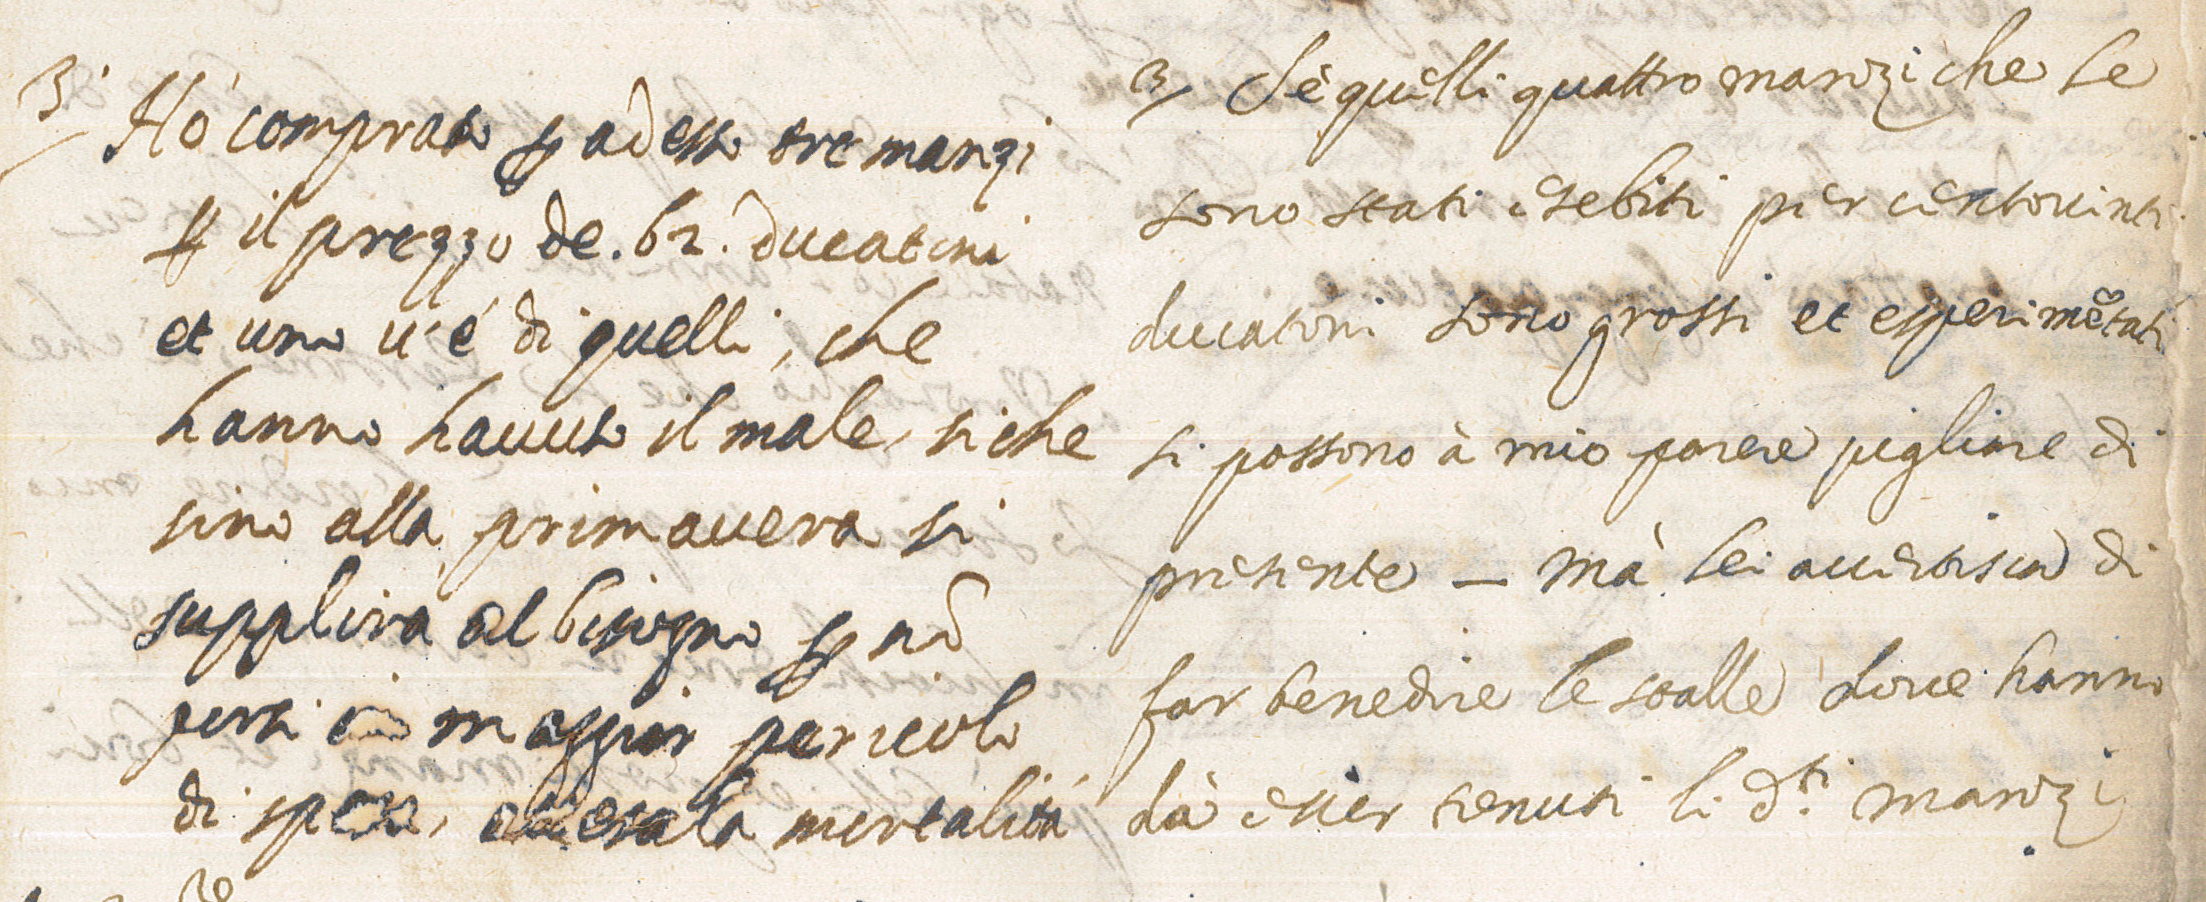 3 Hó comprato p adesso tre manzi
p il prezzo de. 62. ducatoni
et uno u'é di quelli, che
hanno hauuto il male, siche
sino alla primauera si
supplirá al bisogno p nõ
porsi in maggior pericolo
di spesa, attesa la mortalitá
3 Sè quelli quattro manzi che le
sono stati esebiti per centouinti
ducatoni sono grossi et esperimẽtati
si possono à mio parere pigliare di
presente – mà lei auertisca di
far benedire le stalle doue hanno
dà esser tenuti li d.ti manzi